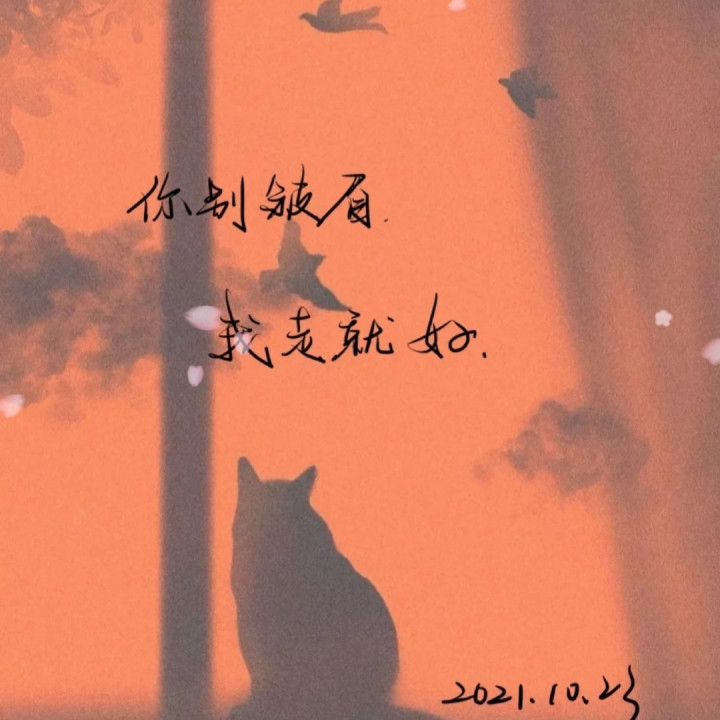 你别皱眉.
我走就好.
2021.10.23